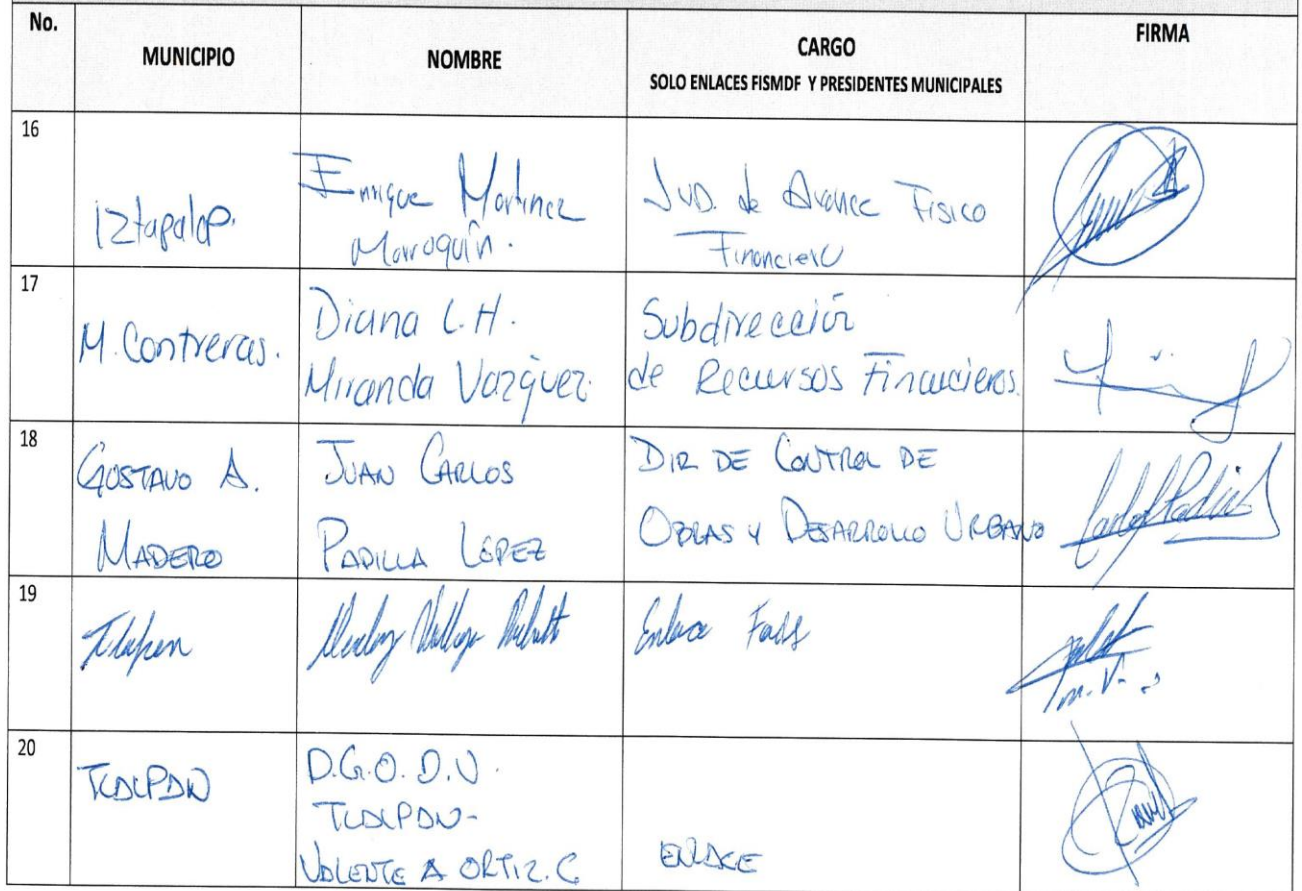 No.
MUNICIPIO
NOMBRE
CARGO
SOLO ENLACES FISMDF Y PRESIDENTES MUNICIPALES
FIRMA
16
Iztapalap.
Enrique Martinez
Marroquín.
JUD. de Avance Fisico
Financiero
17
M. Contreras.
Diana L.H.
Miranda Vazquez.
Subdirección
de Recursos Financieros.
18
GUSTAVO A.
MADERO
JUAN CARLOS
PADILLA LÓPEZ
DIR DE CONTROL DE
OBRAS Y DESARROLLO URBANO
19
Tlalpan
Enlace
20
TLALPAN
D.G.O.D.U.
TLALPAN-
VALENTE A ORTIZ. C
ENLACE